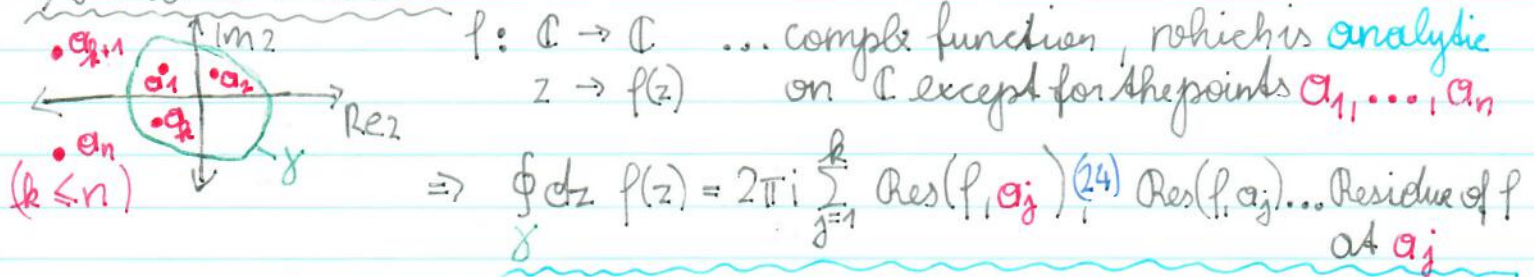 Im z
Re z
a_{k+1}
a_1
a_2
a_k
a_n
γ
(k ≤ n)
f: ℂ → ℂ ... comple function, which is analytic
z → f(z) on ℂ except for the points a_1, ..., a_n
⇒ ∮_γ dz f(z) = 2πi ∑_{j=1}^{k} Res(f, a_j), (24) Res(f, a_j)... Residue of f
at a_j